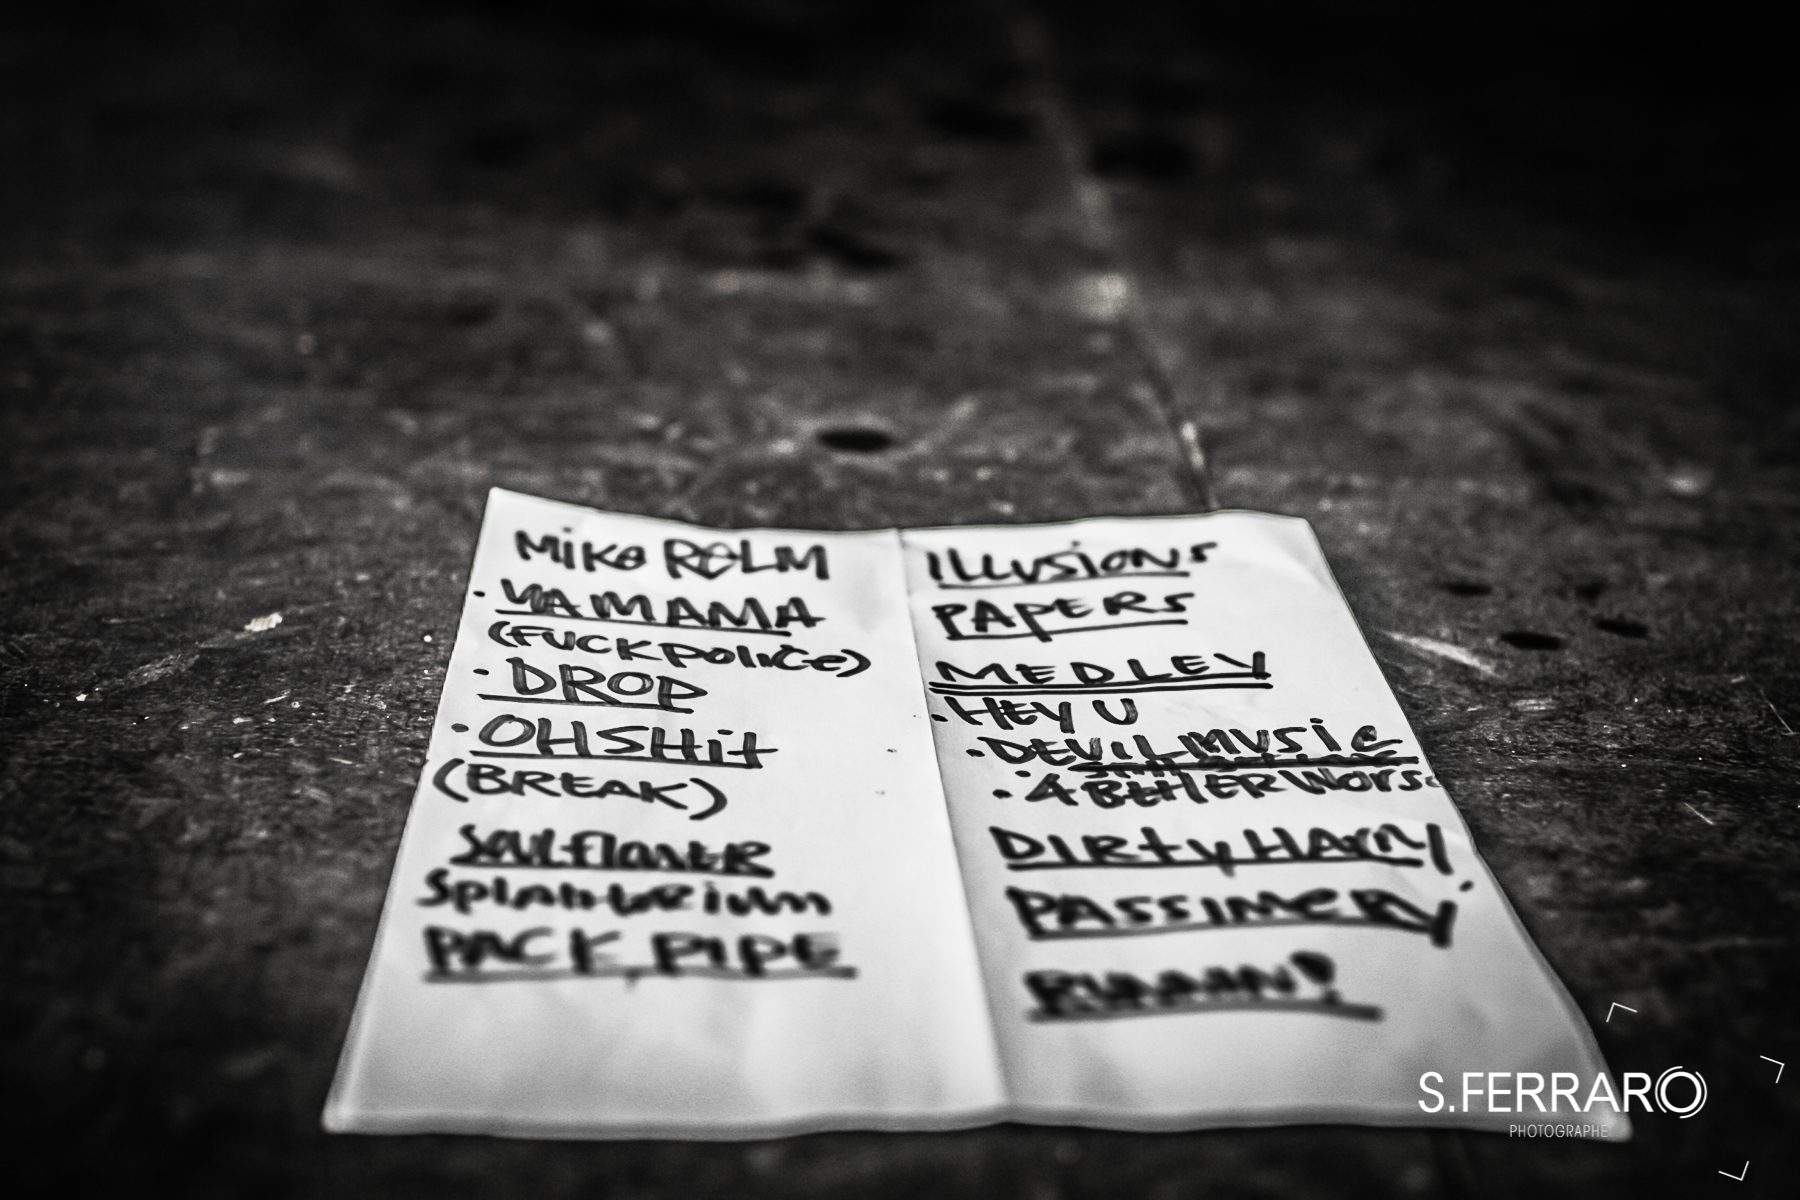 Mike RELM
· YAMAMA
(FUCK police)
· DROP
· OH SHit
(BREAK)
Soulflower
Splantorium
PACK PIPE
ILLUSIONS
PAPERS
MEDLEY
· HEY U
· DEVIL MUSIC
· 4 BETTER WORSE
DIRty HARRY
PASSIMERY
RUNNIN!
S.FERRARO
PHOTOGRAPHE